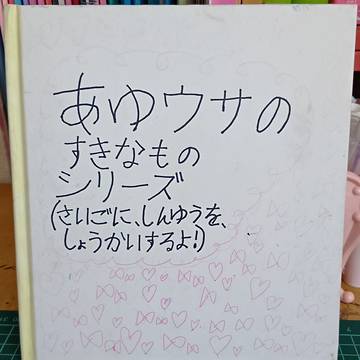 あゆウサの
すきなもの
シリーズ
(さいごに、しんゆうを、
しょうかいするよ!)